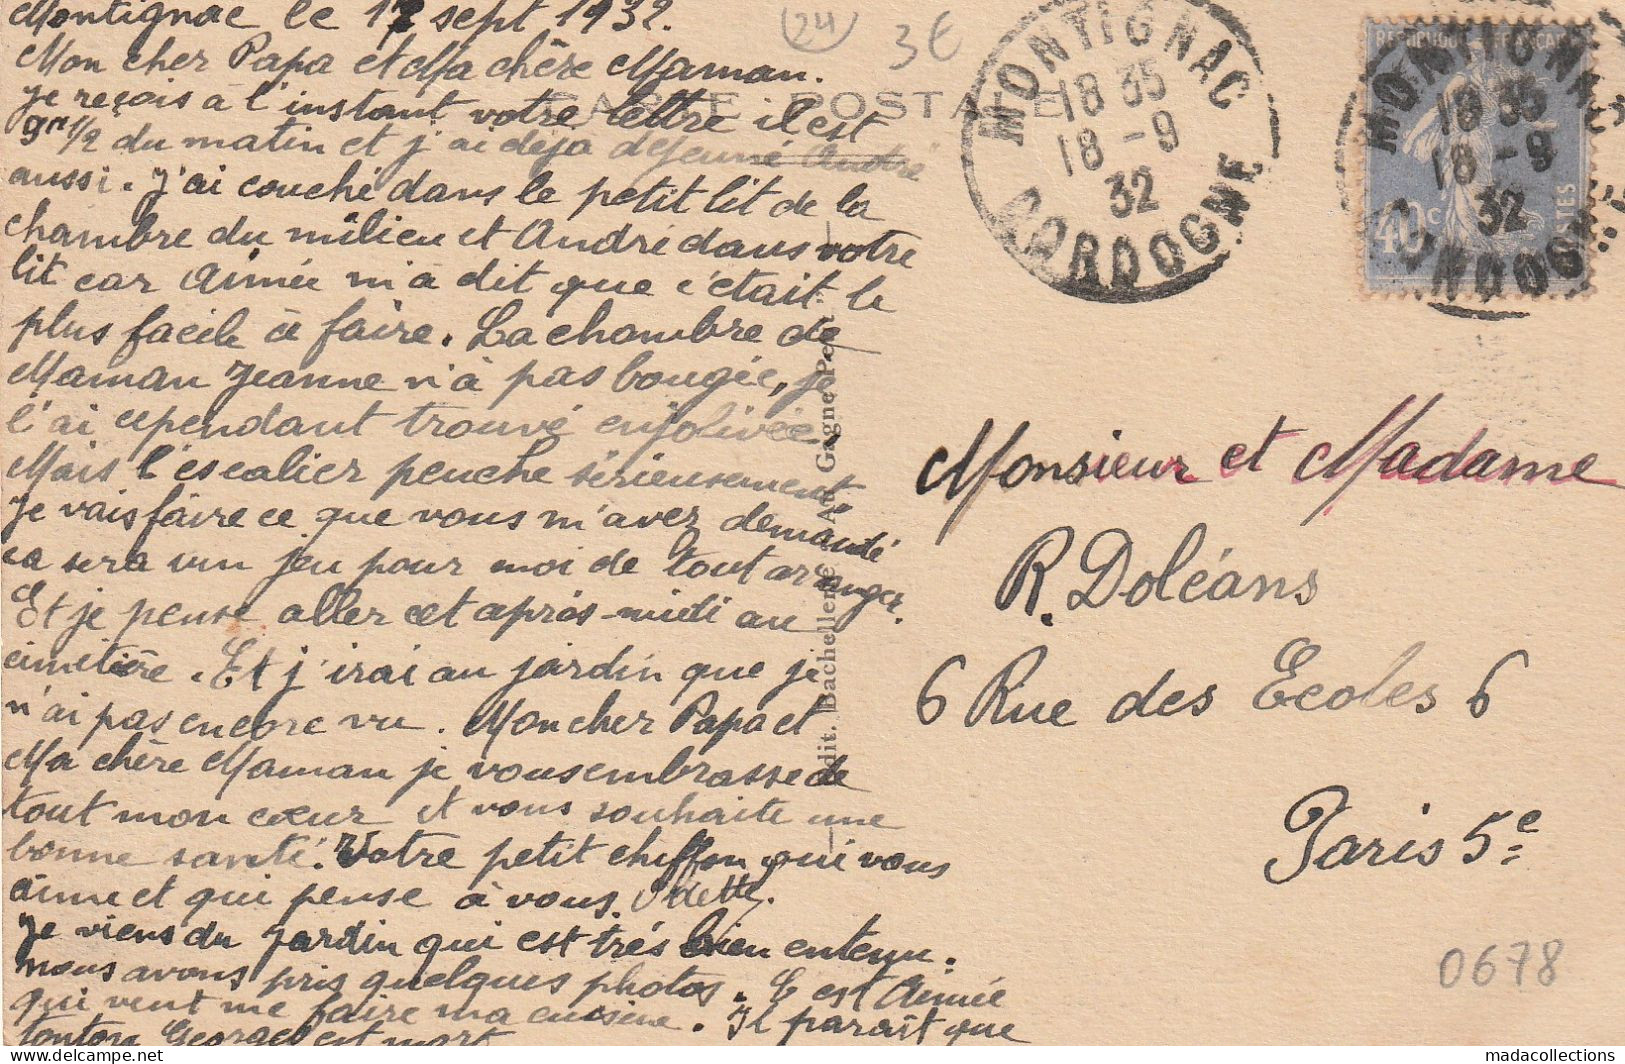 Montignac le 17 sept 1932.
Mon cher Papa et Ma chère Maman.
je reçois à l'instant votre lettre il est
9h 1/2 du matin et j'ai déjà dejeuné André
aussi. J'ai couché dans le petit lit de la
chambre du milieu et André dans votre
lit car Aimée m'a dit que c'était le
plus facile à faire. La chambre de
Maman Jeanne n'a pas bougée, je
l'ai cependant trouvé enjolivée
Mais l'escalier penche sérieusement
Je vais faire ce que vous m'avez demandé
ca sera un jeu pour moi de tout arranger.
Et je pense aller cet après-midi au
cimetière. Et j'irai au jardin que je
n'ai pas encore vu. Mon cher Papa et
Ma chère Maman je vous embrasse de
tout mon cœur et vous souhaite une
bonne santé. Votre petit chiffon qui vous
aime et qui pense à vous. Odette.
Je viens du jardin qui est très bien entenu.
nous avons pris quelques photos. C est Aimée
qui vent me faire ma cuisine. Il paraît que
tonton Georges est mort
24
3€
CARTE POSTALE
MONTIGNAC
18 35
18 -9
32
DORDOGNE
REPUBLIQUE FRANÇAISE
40c
POSTES
MONTIGNAC
18 35
18 -9
32
DORDOGNE
Edit. Bachellerie
Monsieur et Madame
R. Doléans
6 Rue des Ecoles 6
Paris 5e
0678
madacollections